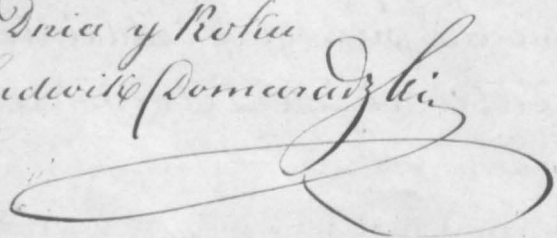 Dnia y Roku
udwik Domaradzki